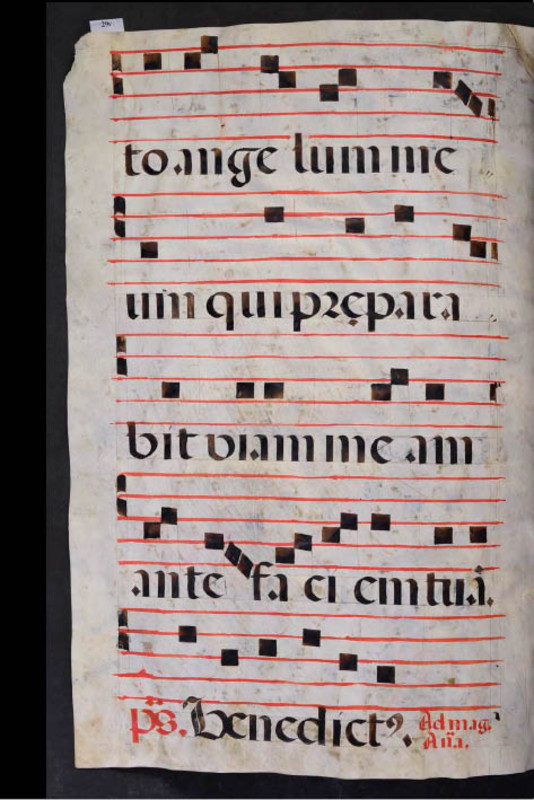 to ange lum me
um qui prępara
bit viam me am
ante fa ci em tuā.
ps. Benedict9. Ad mag.
Aña.